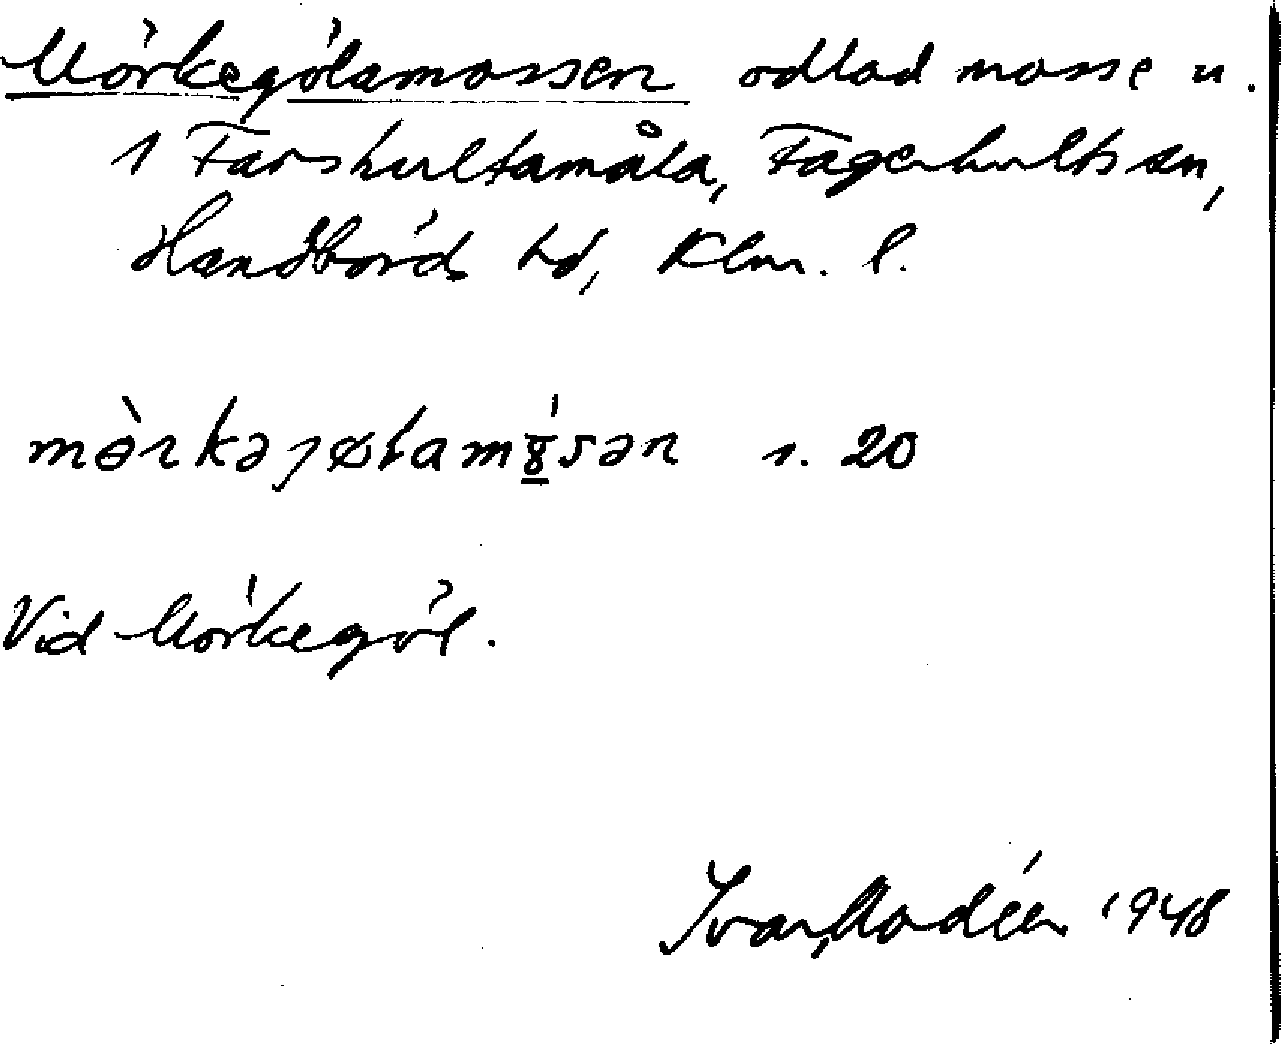 Mörkegölamossen odlad mosse u.
1 Farshultamåla, Fagerhults sn,
Handbörds hd, Klm. l.
mɵ̀rkəȷøⱡamɣ̱́sən s. 20
Vid Mörkegöl.
Ivar Modéer 1948